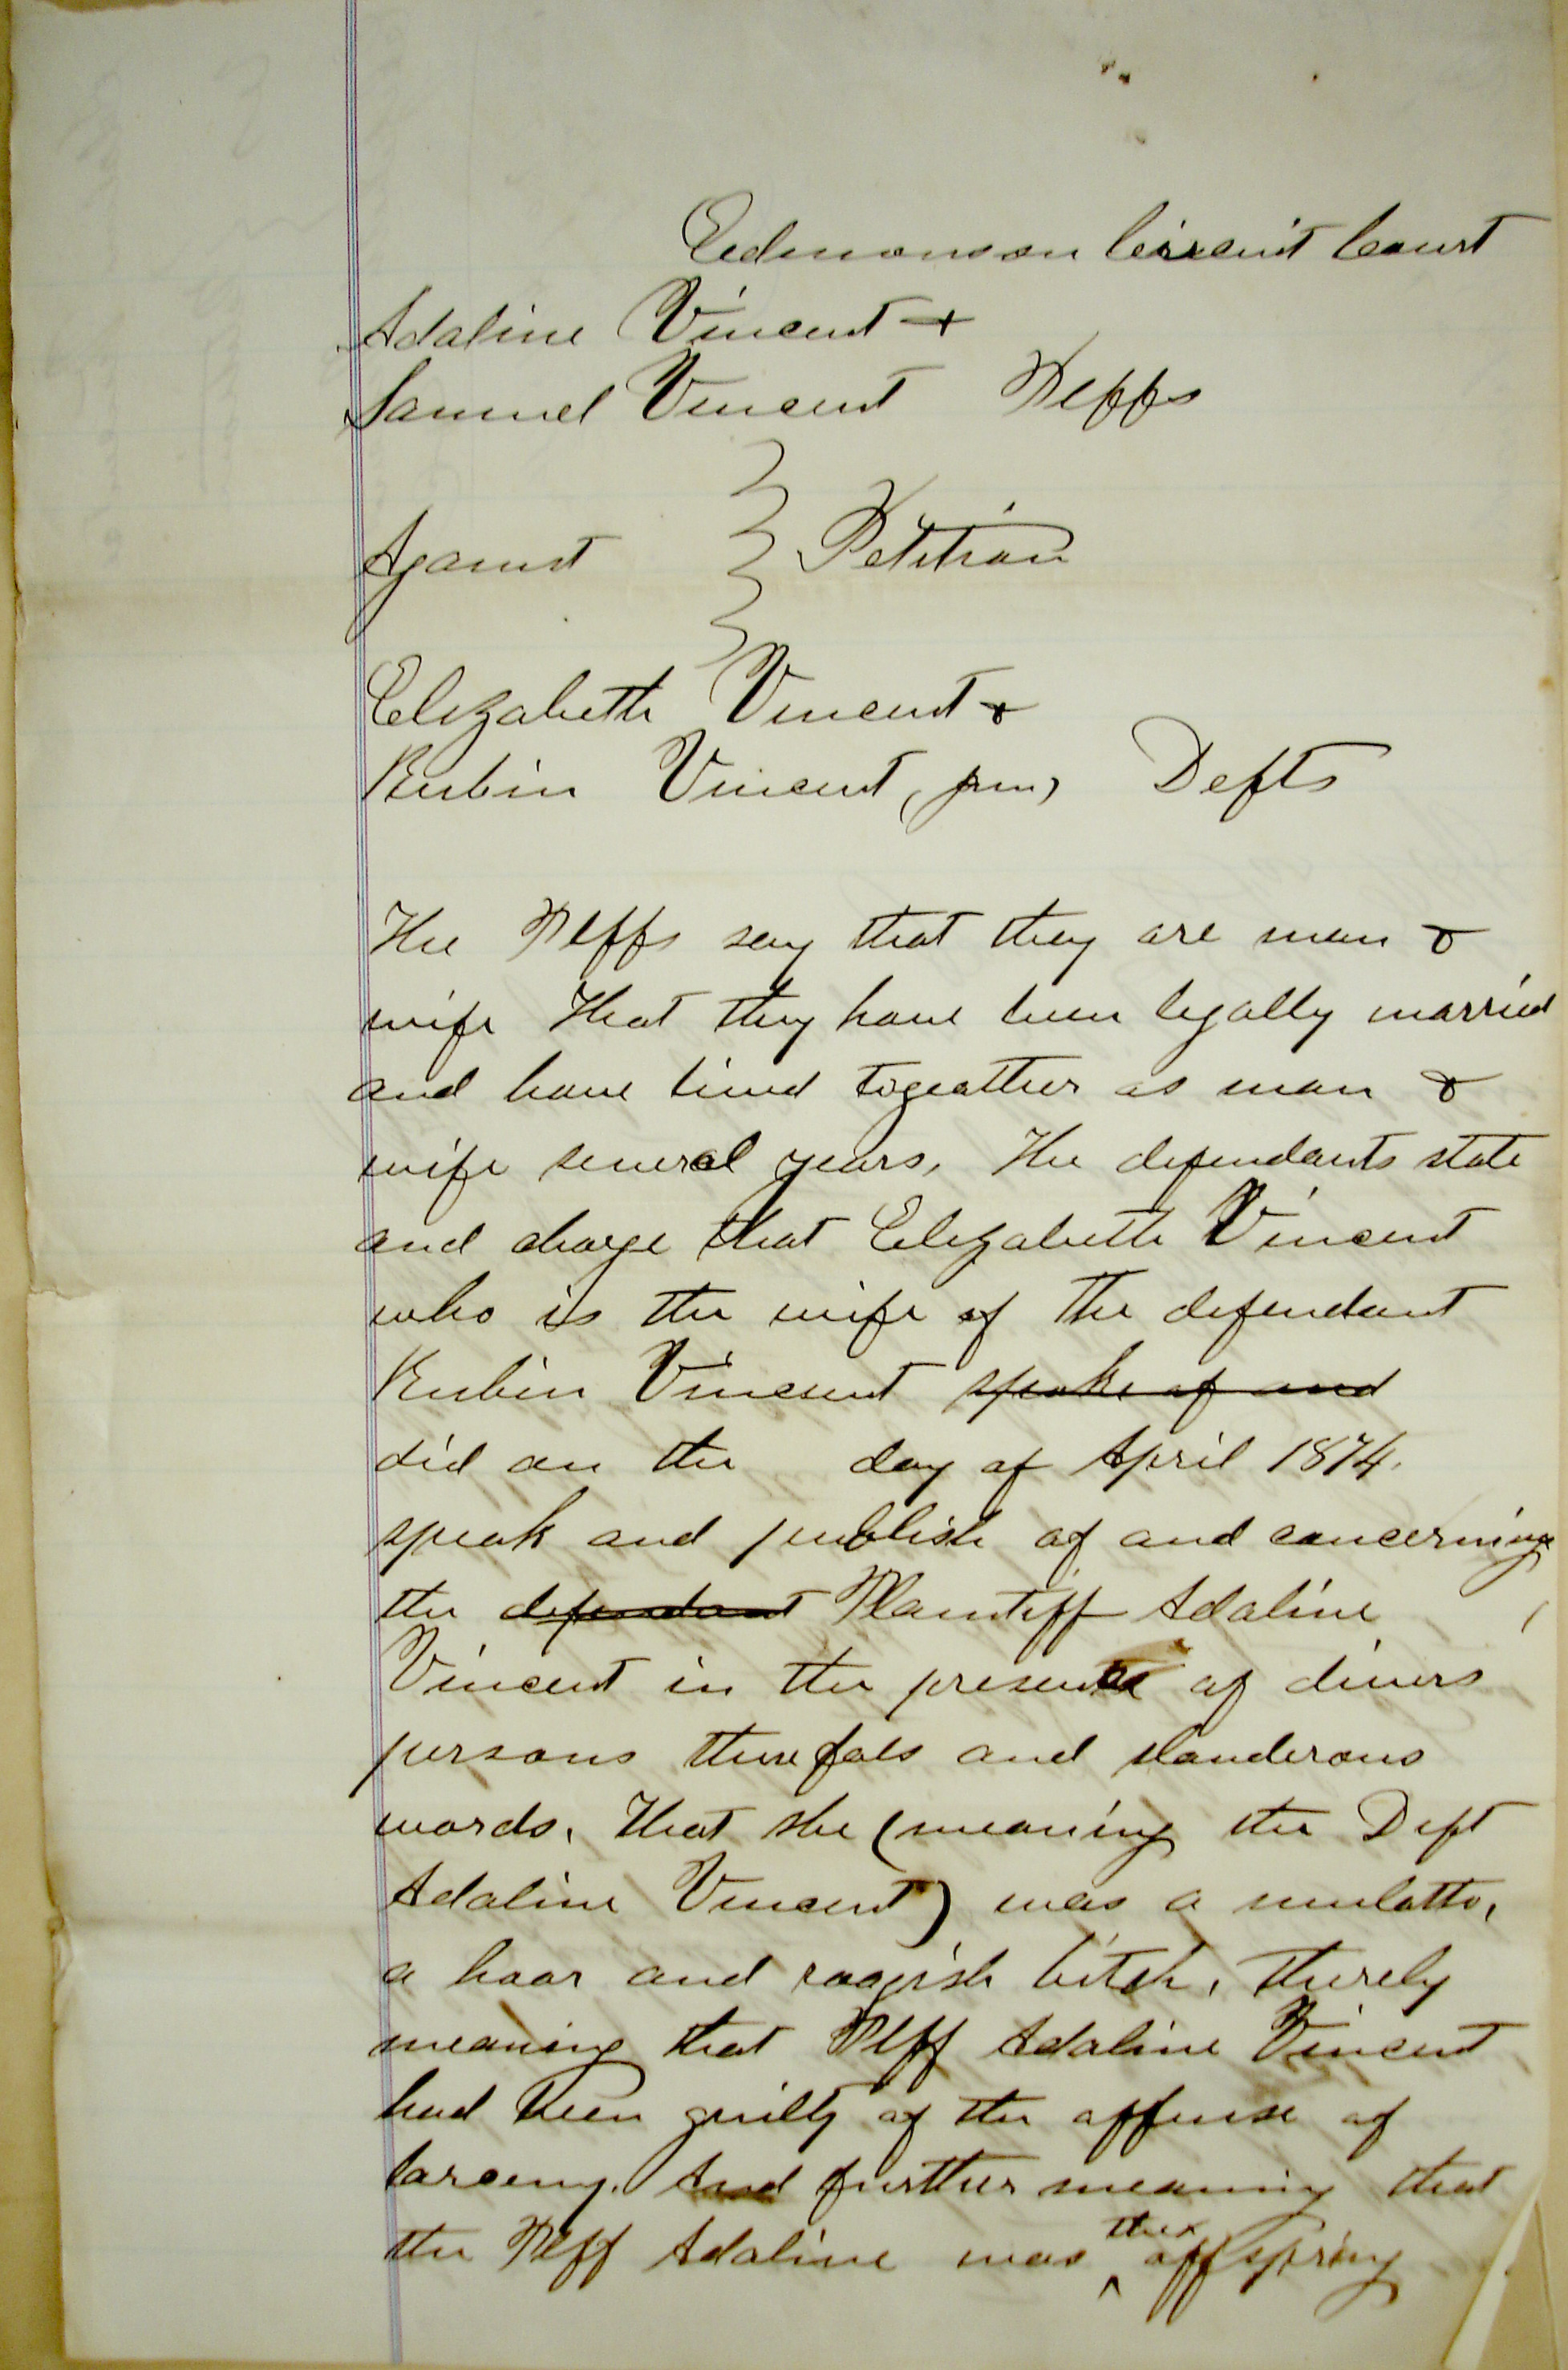 Edmonson Circuit Court
Adaline Vincent &
Samuel Vincent Plffs
Against Petition
Elizabeth Vincent &
Rubin Vincent, jun, Defts
The Plffs say that they are man &
wife That they have been legally married
and have lived togeather as man &
wife several years, The defendants state
and charge that Elizabeth Vincent
who is the wife of the defendant
Rubin Vincent spoke of and
did on the day of April 1874.
speak and publish of and concerning
the defendant Plaintiff Adaline
Vincent in the presence of divers
persons these fals and slanderous
words, That she (meaning the Deft
Adaline Vincent) was a mulatto,
a hoor and roogish bitch, thereby
meaning that Plff Adaline Vincent
had been guilty of the offense of
larceny. And further meaning that
the Plff Adaline was the offspring